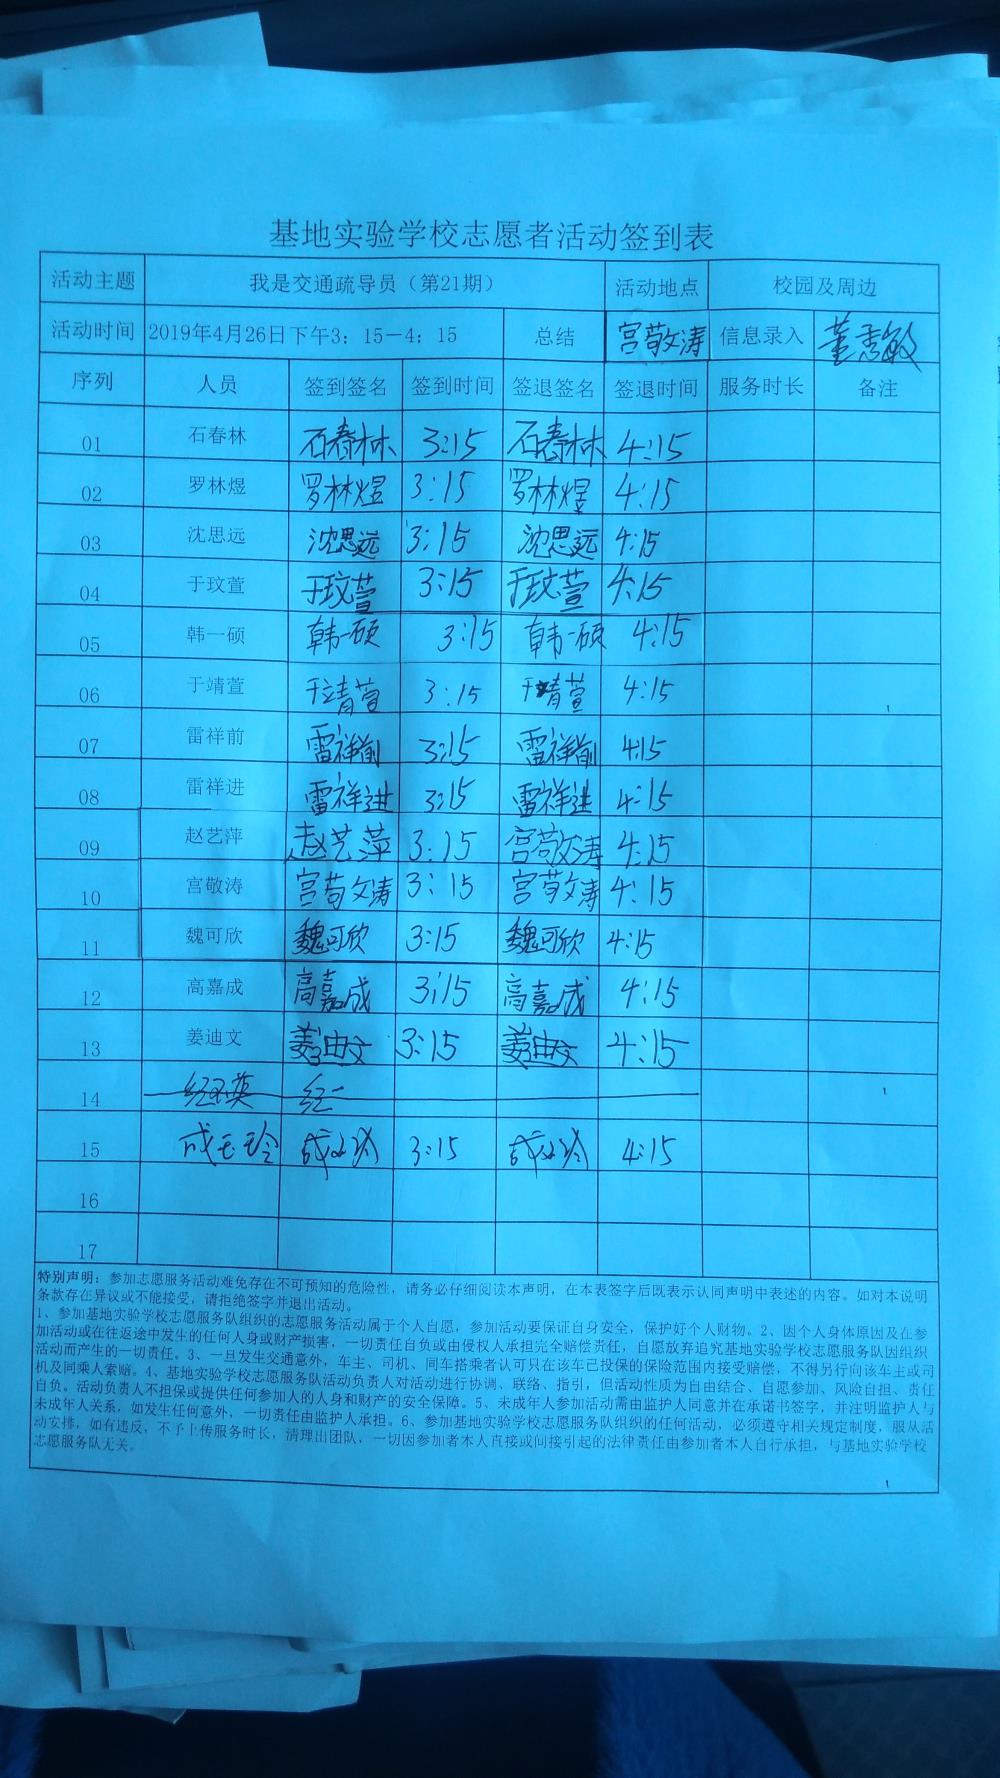 基地实验学校志愿者活动签到表
活动主题 我是交通疏导员（第21期） 活动地点 校园及周边
活动时间 2019年4月26日下午3：15－4：15 总结 宫敬涛 信息录入 董秀敏
序列 人员 签到签名 签到时间 签退签名 签退时间 服务时长 备注
01 石春林 石春林 3:15 石春林 4:15
02 罗林煜 罗林煜 3:15 罗林煜 4:15
03 沈思远 沈思远 3:15 沈思远 4:15
04 于玟萱 于玟萱 3:15 于玟萱 4:15
05 韩一硕 韩一硕 3:15 韩一硕 4:15
06 于靖萱 于靖萱 3:15 于靖萱 4:15
07 雷祥前 雷祥前 3:15 雷祥前 4:15
08 雷祥进 雷祥进 3:15 雷祥进 4:15
09 赵艺萍 赵艺萍 3:15 宫敬涛 4:15
10 宫敬涛 宫敬涛 3:15 宫敬涛 4:15
11 魏可欣 魏可欣 3:15 魏可欣 4:15
12 高嘉成 高嘉成 3:15 高嘉成 4:15
13 姜迪文 姜迪文 3:15 姜迪文 4:15
14
15 成玉玲 成玉玲 3:15 成玉玲 4:15
16
17
特别声明：参加志愿服务活动难免存在不可预知的危险性，请务必仔细阅读本声明，在本表签字后既表示认同声明中表述的内容。如对本说明
条款存在异议或不能接受，请拒绝签字并退出活动。
1、参加基地实验学校志愿服务队组织的志愿服务活动属于个人自愿，参加活动要保证自身安全，保护好个人财物。2、因个人身体原因及在参
加活动或在往返途中发生的任何人身或财产损害，一切责任自负或由侵权人承担完全赔偿责任，自愿放弃追究基地实验学校志愿服务队因组织
活动而产生的一切责任。3、一旦发生交通意外，车主、司机、同车搭乘者认可只在该车已投保的保险范围内接受赔偿，不得另行向该车主或司
机及同乘人索赔。4、基地实验学校志愿服务队活动负责人对活动进行协调、联络、指引，但活动性质为自由结合、自愿参加、风险自担、责任
自负。活动负责人不担保或提供任何参加人的人身和财产的安全保障。5、未成年人参加活动需由监护人同意并在承诺书签字，并注明监护人与
未成年人关系，如发生任何意外，一切责任由监护人承担。6、参加基地实验学校志愿服务队组织的任何活动，必须遵守相关规定制度，服从活
动安排，如有违反，不予上传服务时长，清理出团队，一切因参加者本人直接或间接引起的法律责任由参加者本人自行承担，与基地实验学校
志愿服务队无关。